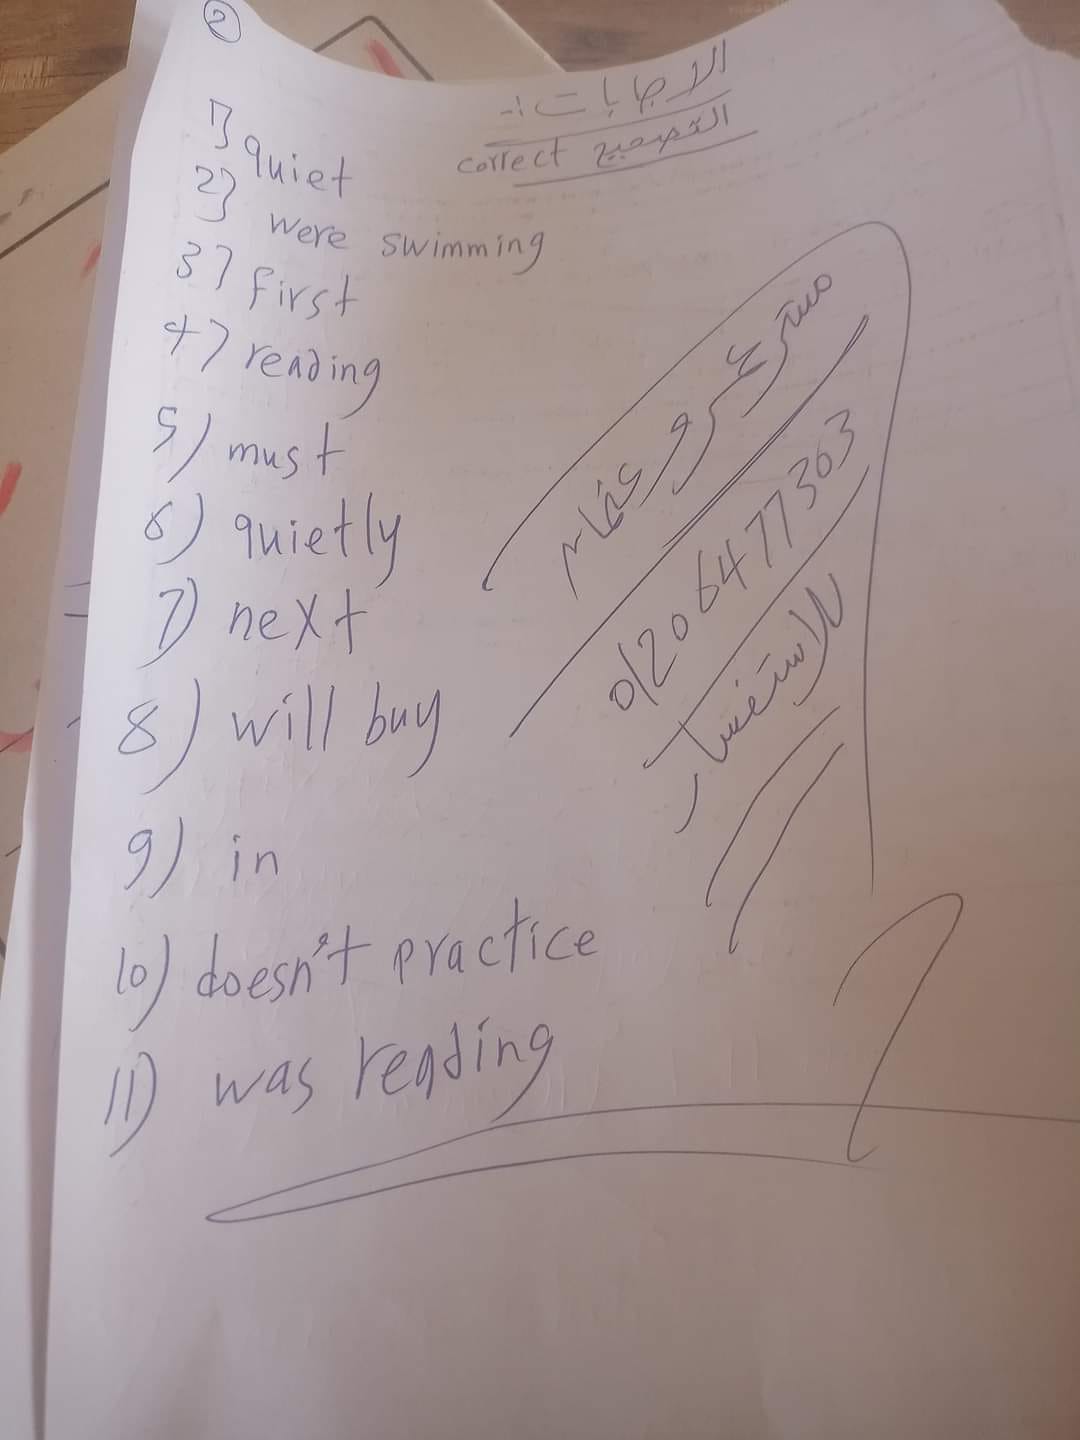 2
الاجابات:-
correct التصحيح
1) quiet
2) were swimming
3) first
4) reading
5) must
6) quietly
7) next
8) will buy
9) in
10) doesn't practice
11) was reading
مستر عمرو عصام
01206477363
للاستفسار